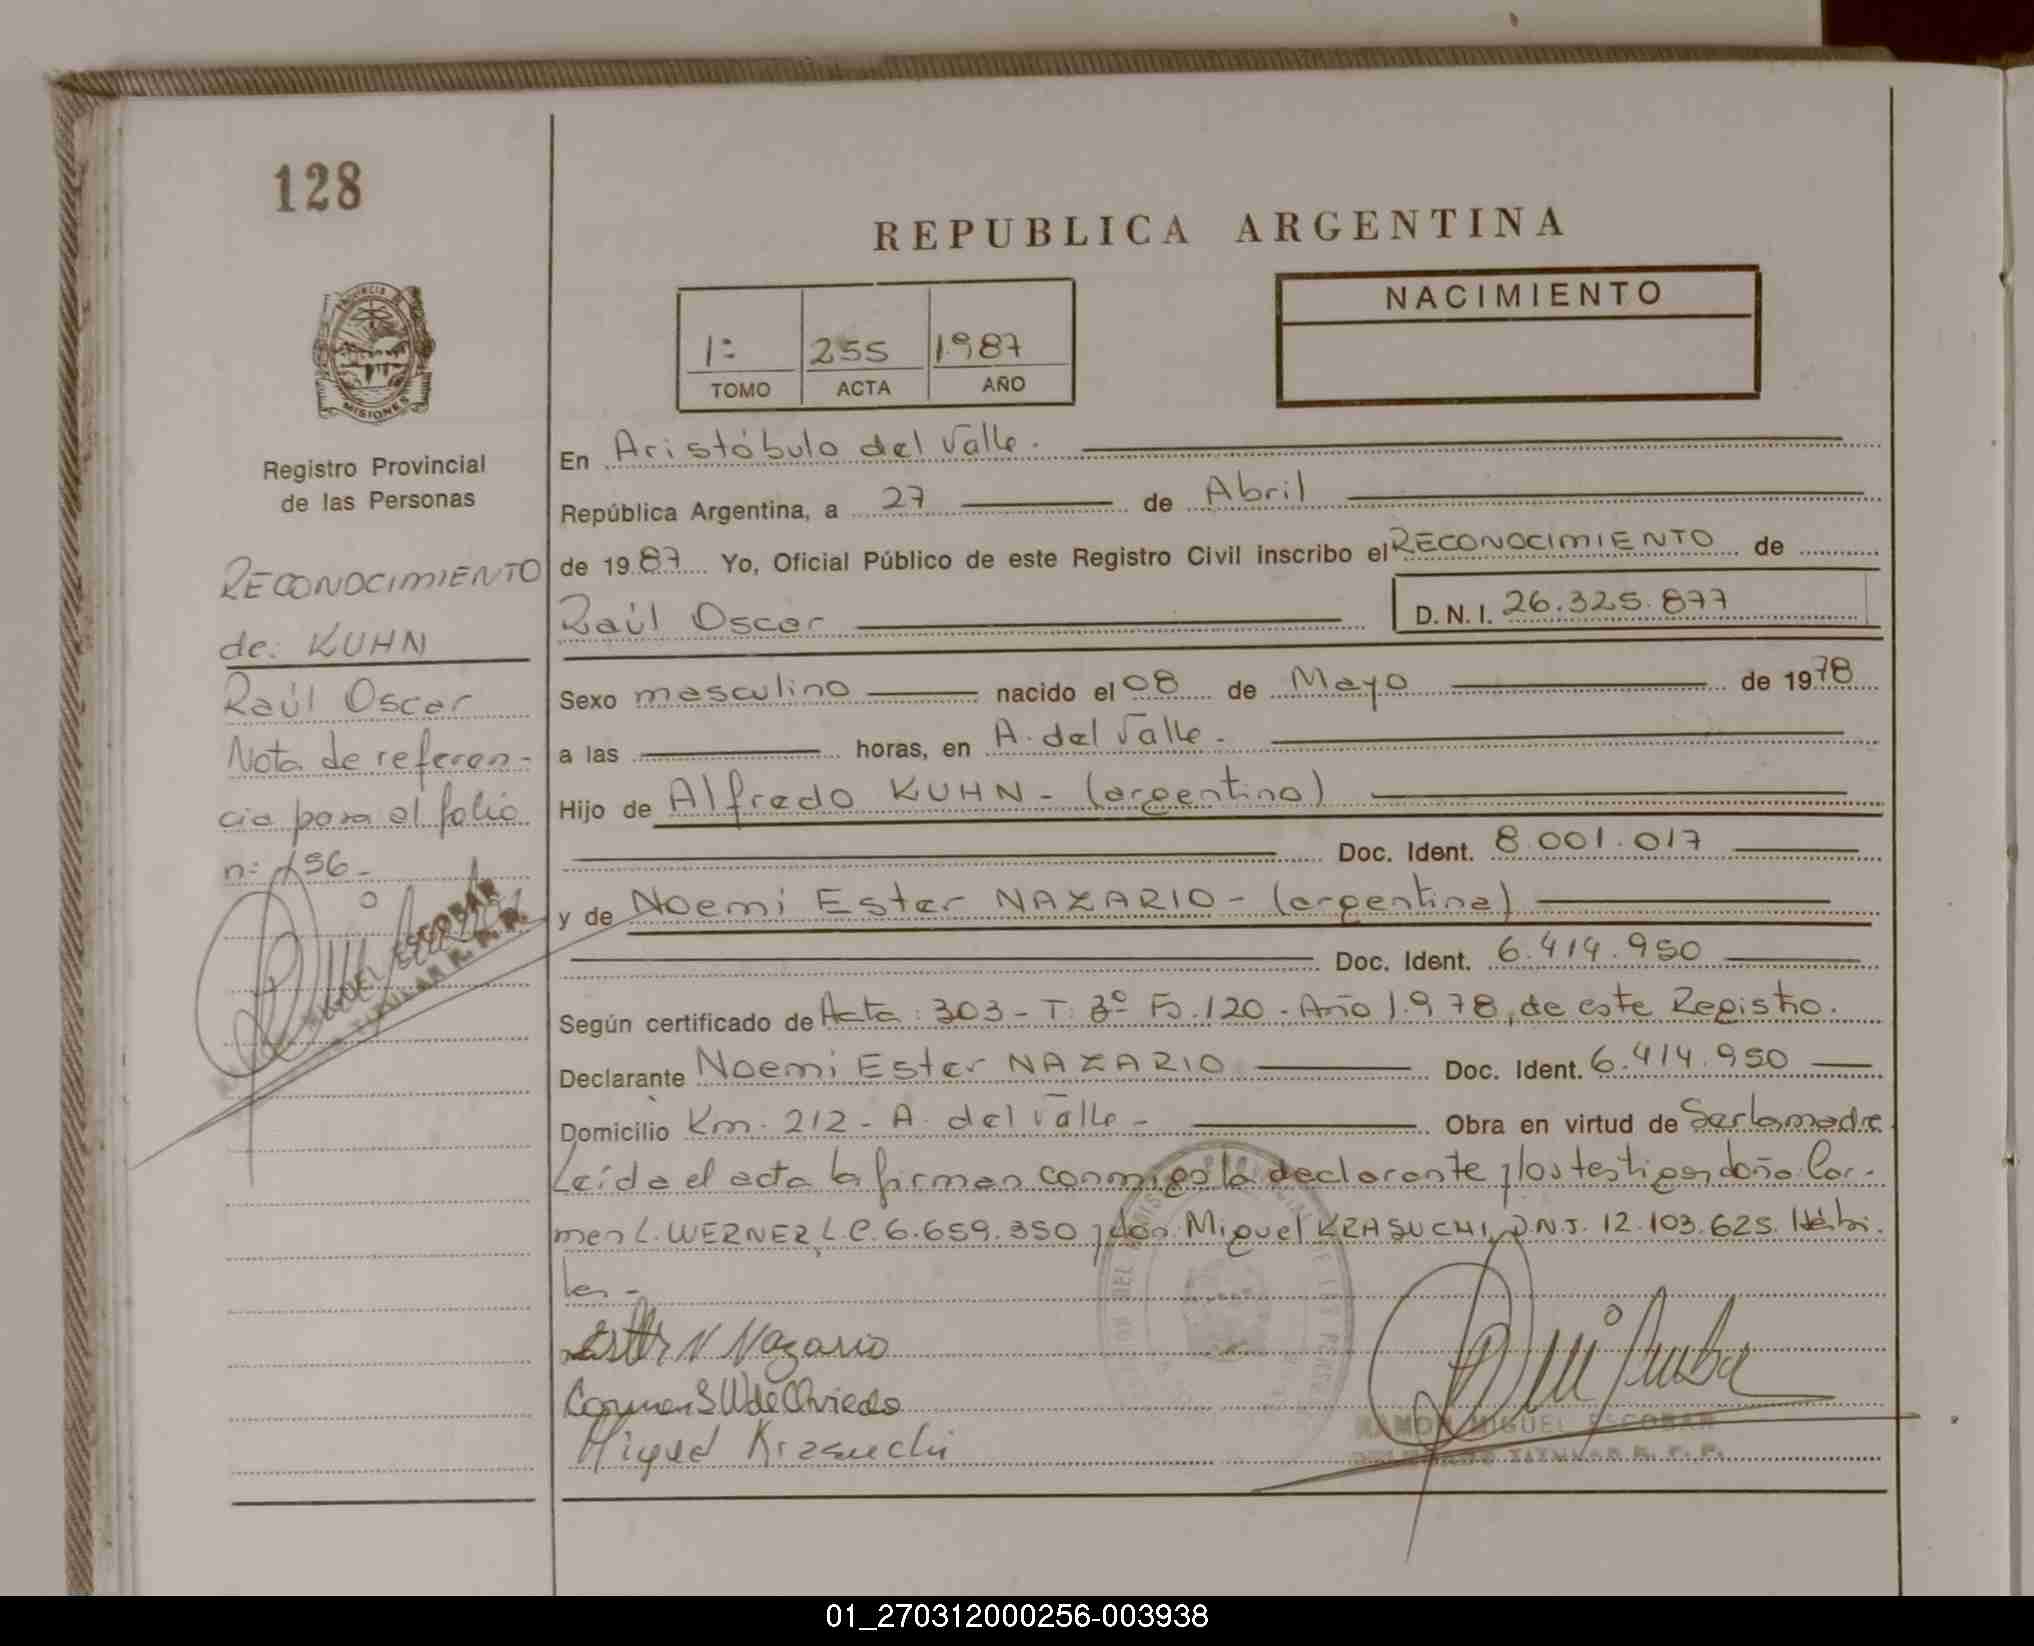 128
REPUBLICA ARGENTINA
NACIMIENTO
1º 255 1987
TOMO ACTA AÑO
PROVINCIA DE
MISIONES
Registro Provincial
de las Personas
RECONOCIMIENTO
de: KUHN
Raúl Oscar
Nota de referen-
cia para el folio
n: 156-
MIGUEL ESCOBAR
TITULAR R. P. P.
En Aristóbulo del Valle.
República Argentina, a 27 de Abril
de 1987 Yo, Oficial Público de este Registro Civil inscribo el RECONOCIMIENTO de
Raúl Oscar D.N.I. 26.325.877
Sexo masculino nacido el 08 de Mayo de 1978
a las horas, en A. del Valle.
Hijo de Alfredo KUHN - (argentino)
Doc. Ident. 8.001.017
y de Noemi Ester NAZARIO - (argentina)
Doc. Ident. 6.414.950
Según certificado de Acta: 303 - T: 3º Fº.120 - Año 1.978, de este Registro.
Declarante Noemi Ester NAZARIO Doc. Ident. 6.414.950
Domicilio Km. 212 - A. del Valle - Obra en virtud de Ser la madre
Leída el acta la firman conmigo la declarante y los testigos, doña Car-
men L. WERNER, L.C. 6.659.350 y don Miguel KRASUCHI, D.N.I. 12.103.625. Hábi-
les -
Ester N Nazario
Carmen S W de Oviedo
Miguel Krasuchi
RAMON MIGUEL ESCOBAR
TITULAR R. P. P.
01_270312000256-003938